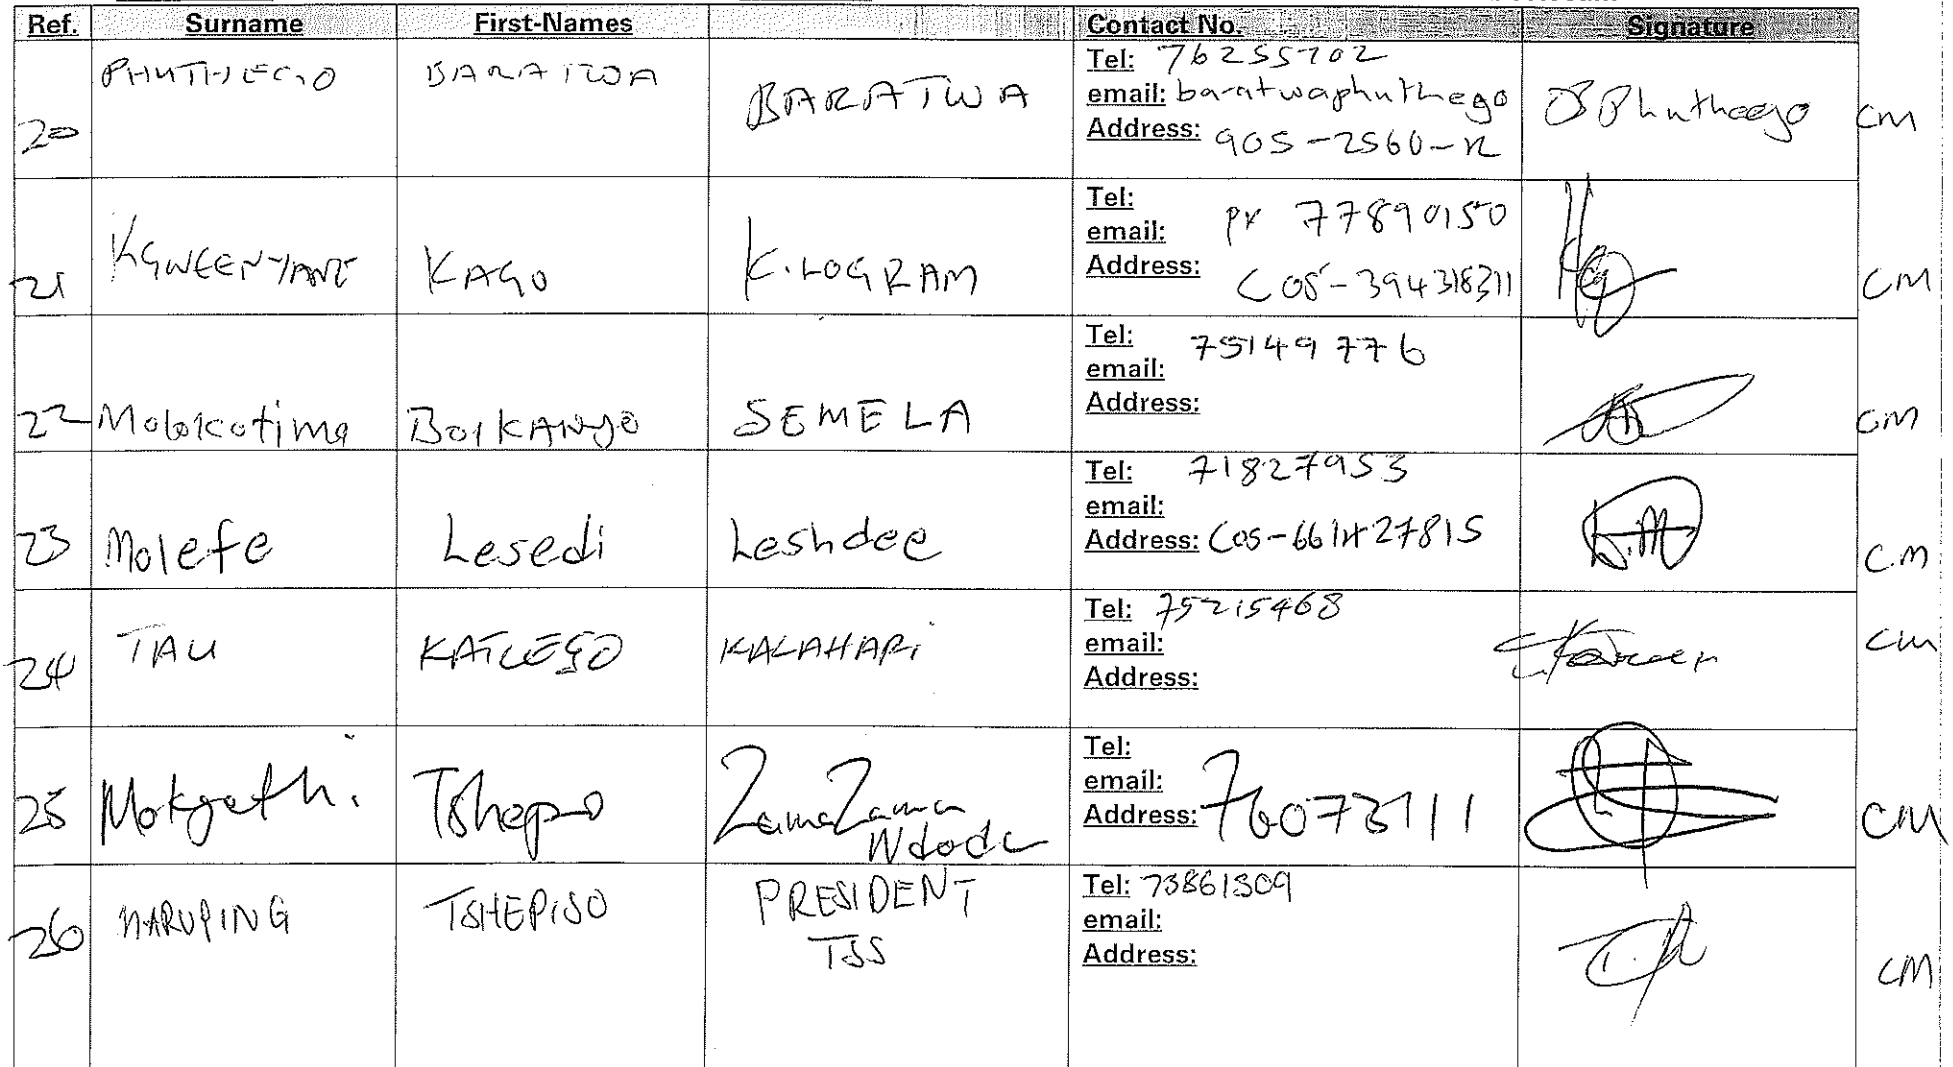 Ref. Surname First-Names Contact No. Signature
20 PHUTHEGO BARATWA BARATWA Tel: 76255702
email: baratwaphuthego
Address: 905-2560-R
B Phuthego CM
21 KGWEENYANE KAGO K.LOGRAM Tel:
email: PX 77890150
Address: COS-394318311
CM
22 Molokotima BOIKANYO SEMELA Tel: 75149776
email:
Address:
CM
23 Molefe Lesedi Leshdee Tel: 71827953
email:
Address: COS-661427815
L.M C.M
24 TAU KATLEGO KALAHARi Tel: 75215468
email:
Address:
CM
25 Mokgethi Tshepo ZamaZama Ndoda Tel:
email:
Address: 76073111
CM
26 MARUPING TSHEPISO PRESIDENT TSS Tel: 73861309
email:
Address:
CM